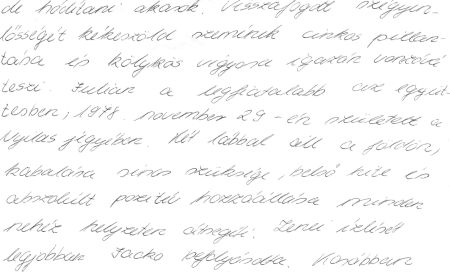 de hódítani akarok. Visszafogott szégyen-
lősségét kékeszöld szemének cinkos pillan-
tása és kölykös vigyora igazán vonzóvá
teszi. Julian a legfiatalabb az együt-
tesben, 1978. november 29-én született a
Nyilas jegyében. Két lábbal áll a földön,
kabalára nincs szüksége, belső híte és
abszolút pozitív hozzáállása minden
nehéz helyzeten átsegíti. Zenei ízlését
legjobban Jacko befolyásolta. Korábban